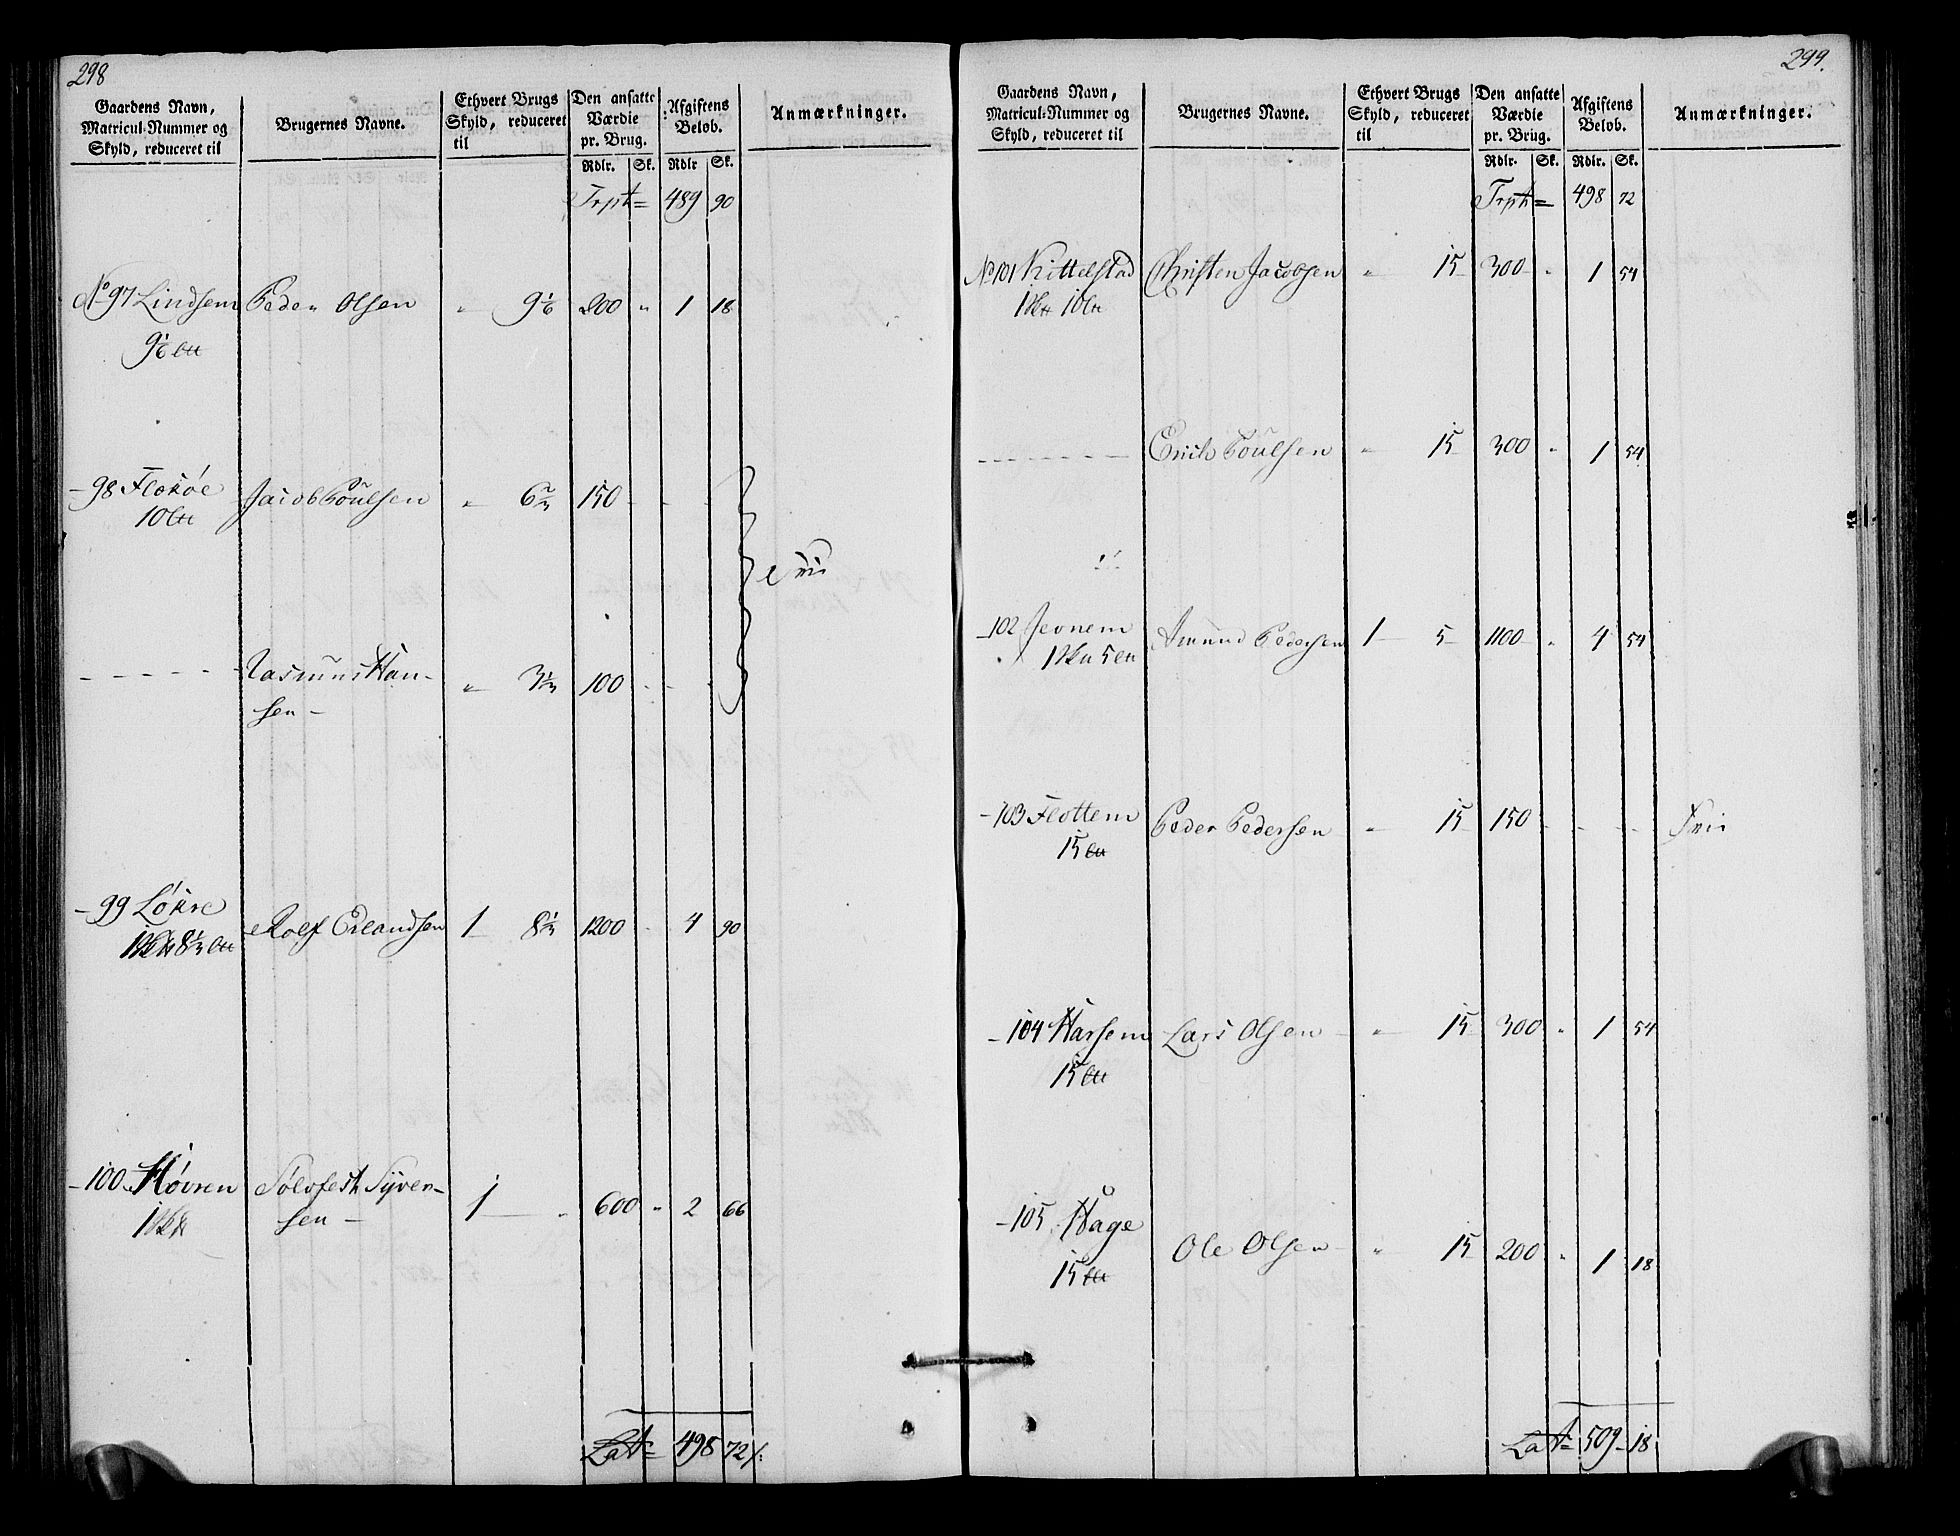 298
Gaardens Navn, Matricul-Nummer og Skyld, reduceret til
Brugernes Navne.
Ethvert Brugs Skyld, reduceret til
Den ansatte Værdie pr. Brug.
Afgiftens Beløb.
Anmærkninger.
Rdlr. Sk. Rdlr Sk.
Trpt= 489 90
No 97 Lindsem Peder Olsen " 9 1/6 200 " 1 18
9 1/6 
98 Flokøe Jacob Poulsen " 6 2/3 150 - - -
10
Frie
- - - - - Rasmus Han- " 3 1/3 100 - - -
sen -
- 99 Løkre Rolf Erlandsen 1 8 1/3 1200 - 4 90
1 8 1/3
- 100 Høvren Sølvfest Syver- 1 " 600 " 2 66
1 sen -
Lat= 498 72
299.
Gaardens Navn, Matricul-Nummer og Skyld, reduceret til
Brugernes Navne.
Ethvert Brugs Skyld, reduceret til
Den ansatte Værdie pr. Brug.
Afgiftens Beløb.
Anmærkninger.
Rdlr. Sk. Rdlr. Sk.
Trpt= 498 72
No 101 Kittelstad Christen Jacobsen " 15 300 " 1 54
1 10
- - - - - Erich Poulsen " 15 300 " 1 54
- 102 Jevnem Amund Pedersen 1 5 1100 " 4 54
1 5
- 103 Flottem Peder Pedersen " 15 150 - - - Frie
15
- 104 Harsem Lars Olsen " 15 300 " 1 54
15
- 105 Hage Ole Olsen " 15 200 " 1 18
15
Lat= 509 - 18